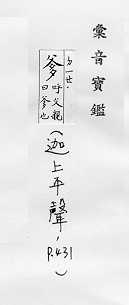 彙音寶鑑
爹 呼父親
曰爹也
(迦上平聲,
P.431)